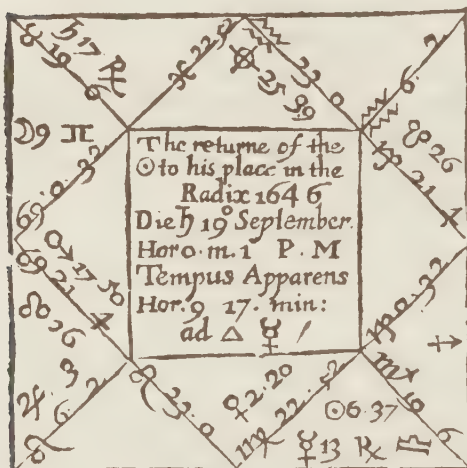 ♄ 17 ℞
♉ 19 6
♓ 22 5
25
♒ 23 0
♒ 6. 2
☽9 ♊
The returne of the
☉ to his place in the
Radix 1646
Die ♄ 19° September.
Hor 0. m. 1 P. M
Tempus Apparens
Hor. 9 17. min:
ad △ ☿
☋ 26
♑ 21 4
0.32
♂ 17 50
21 4
☊
♃ 6. 3
♌
♌ 23.0
♀ 2.20
♍ 22.52
☉6.37
☿ 13 ℞ ♎
♏
0.32
♐